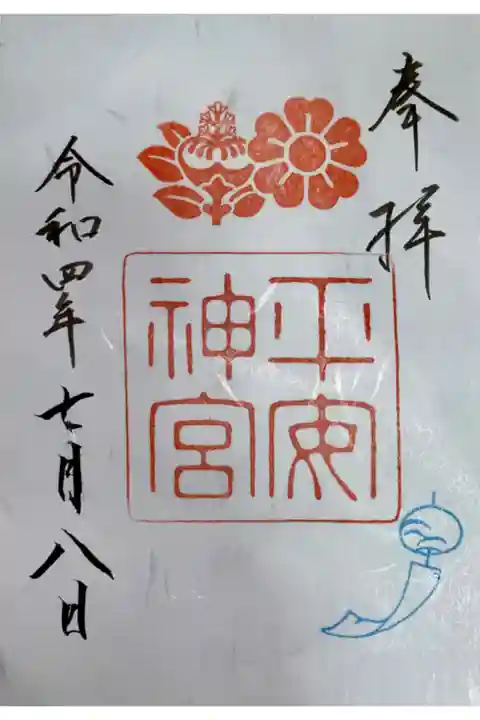 奉拝
平安
神宮
令和四年七月八日